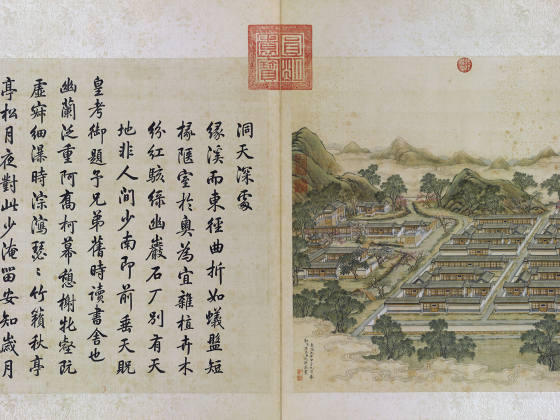 洞天深處
緣溪而東徑曲折如蟻盤短
椽陋室於奧為宜雜植卉木
紛紅駭綠幽巖石厂別有天
地非人間少南即前垂天貺
皇考御題予兄弟舊時讀書舍也
幽蘭泛重阿喬柯幕憩榭牝壑既
虛寂細瀑時淙瀉瑟〻竹籟秋亭
亭松月夜對此少淹留安知歲月